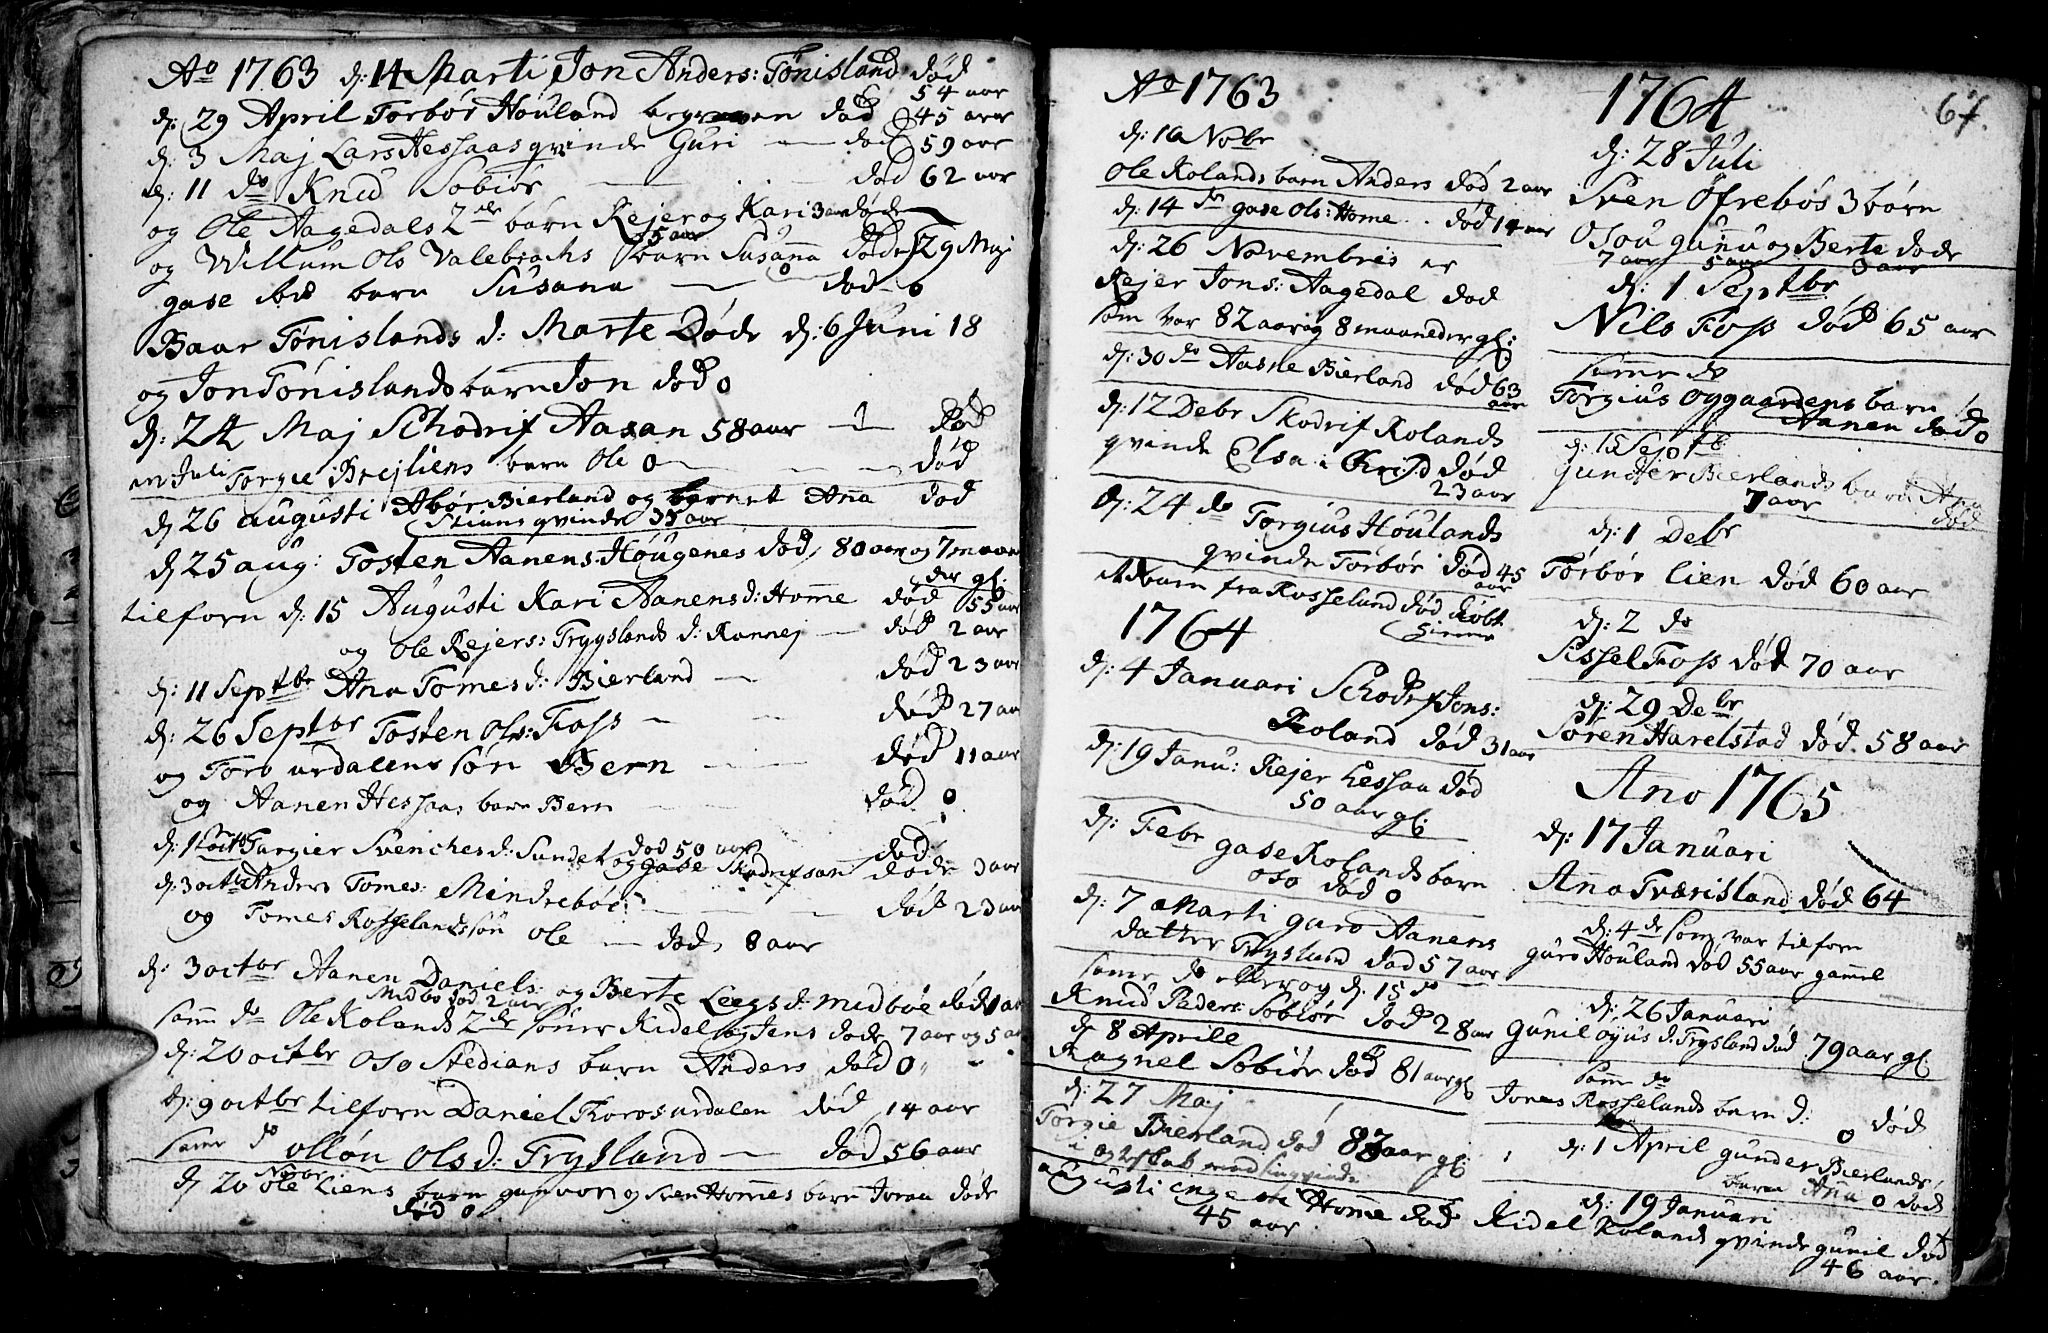 Ao 1763 d: 14 Marti Jon Anders: Tönisland död
54 aar
d: 29 April Torbör Houland begraven död 45 aar
d: 3 Maj Lars Hessaas qvinde Guri — död 59 aar
d: 11 do Knud Sobiör — död 62 aar
og Ole Aagedals 2de börn Rejer og Kari 3 aar döde
5 aar
og Willum Ols Valebrochs barn Susanna döde 29 Maj
0
gase barn Susana — död 0
Baar Tönislands d: Marte Döde d: 6 Juni 18
og Jon Tönislands barn Jon död 0
d: 24 Maj Schodrif Aasan 58 aar — död
Juli Torgie Brejliens barn Ole 0 — död
d 26 augusti Abör Bierland og barnet Anna död
Stians qvinde 35 aar
d 25 aug: Tosten Aanens Hougenes död, 80 aar og 7 maane
der gl:
tilforn d: 15 Augusti Kari Aanens d: Homme död 55 aar
og Ole Rejers: Trygslands d: Rannej — död 2 aar
d: 11 Septbr Ana Tomes d: Bierland — död 23 aar
d: 26 Septbr Tosten Ols: Foss — död 27 aar
og Toro urdalens sön Bern — död 11 aar
og Aanen Hessaas barn Bern — död 0
d: 1 octbr Torgier Svenches d: Sundet död 50 aar död
og gase Skodrifson döde 3 aar
d: 3 octbr Anders Tomes: Mindrebö: — död 23 aar
og Tomes Rosselands sön Ole — död, 8 aar
d: 3 octbr Aanen Daniels: og Berte Leegs d: Midböe död 1 aar
Midbö död 2 aar
samme do Ole Rolands 2de söner Kidel og Jens döde 7 aar og 5 a
d: 20 octbr Oso Stedians barn Anders död 0
d: 9 octbr tilforn Daniel Toros urdalen död 14 aar
samme do ollön Ols d: Trysland — död 56 aar
d 20 Novbr Ole Liens barn gunvor og Sven Hommes barn Joraa döde
död 0
Ao 1763
d: 10 Nobr
Ole Rolands barn Anders död 2 aar
d: 14 do gase Ols: Home. död 14 aar
d: 26 Novembris er
Rejer Jons: Aagedal död
som var 82 aar og 8 maaneder gl:
d: 30 do Aasne Bierland död 63
aar
d: 12 Debr Skodrif Rolands
qvinde Elsa i Christ död
23 aar
d: 24 do Torgius Houlands
qvinde Torbör död 45
aar
Et barn fra Rosseland död döbt
hiemme
1764
d: 4 Januari Schodrif Jons:
Roland död 31 aar
d: 19 Janu: Rejer Hessaa död
50 aar gl:
d: Febr gase Rolands barn
oso död 0
d: 7 Marti guro Aanens
datter Trysland död 57 aar
samme do og d. 15 do
Knud Peders: Sobiör död 28 aar
d 8 Aprile
Ragnel Sobiör död 81 aar gl
d: 27 Maj
Torgie Bierland död 83 aar gl:
i med sin qvinde
augusti engen Homme död
45 aar
1764
67.
d: 28 Juli
Sven Öfrebös 3 börn
Osou gunu og Berte döde
7 aar 5 aar 3 aar
d: 1 Septbr
Nils Foss död 65 aar
samme do
Torgius Oggaardens barn
Aanen död 0
d: 15 Septb
Gunder Bierlands barn Ana
7 aar död
d: 1 Debr
Torbör Lien död 60 aar
d: 2 do
Sissel Foss död 70 aar
d: 29 Debr
Sören Harelstad död. 58 aar
Ano 1765
d: 17 Januari
Ana Tværisland död 64
d: 4de som var tilforn
guro Houland död 55 aar gamel
d: 26 Januari
Gunil Oyus d: Trysland död 79 aar gl:
samme do
Jones Rosselands barn d: 0 död
d: 1 April gunder Bierlands
barn Ana 0 död
d: 19 Januari
Kidel Rolands qvinde gunil död
46 aar.